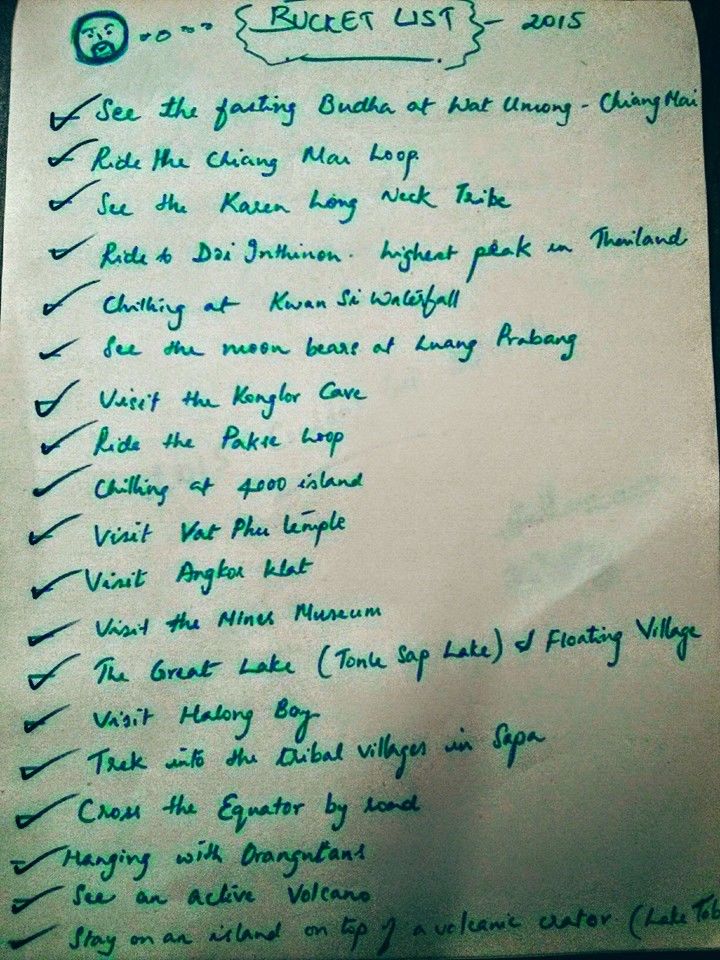 BUCKET LIST - 2015
See the fasting Budha at Wat Umong - Chiang Mai
Ride the Chiang Mai Loop
See the Karen Long Neck Tribe
Ride to Doi Inthinon. highest peak in Thailand
Chilling at Kwan Si Waterfall
See the moon bears at Luang Prabang
Visit the Konglor Cave
Ride the Pakse Loop
Chilling at 4000 island
Visit Vat Phu temple
Visit Angkor Wat
Visit the Mines Museum
The Great Lake (Tonle Sap Lake) & Floating Village
Visit Halong Bay
Trek into the tribal villages in Sapa
Cross the Equator by road
Hanging with Orangutans
See an active Volcano
Stay on an island on top of a volcanic crator (Lake Tob